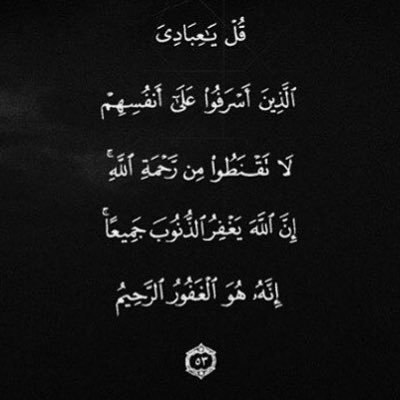 قُلْ يَـٰعِبَادِىَ
ٱلَّذِينَ أَسْرَفُوا۟ عَلَىٰٓ أَنفُسِهِمْ
لَا تَقْنَطُوا۟ مِن رَّحْمَةِ ٱللَّهِ ۚ
إِنَّ ٱللَّهَ يَغْفِرُ ٱلذُّنُوبَ جَمِيعًا ۚ
إِنَّهُۥ هُوَ ٱلْغَفُورُ ٱلرَّحِيمُ
٥٣